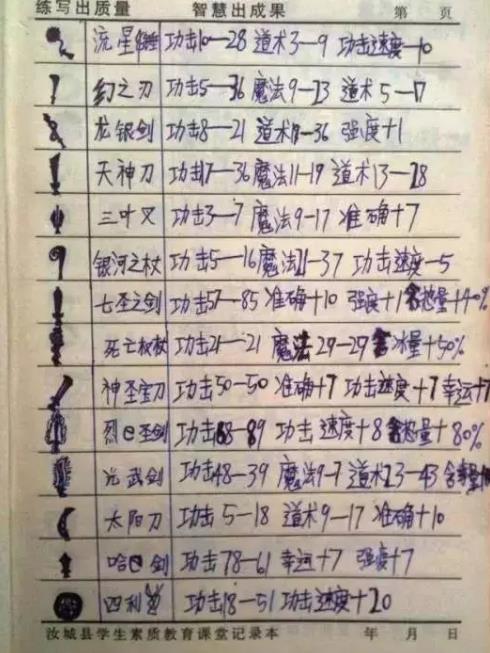 练写出质量 智慧出成果 第 页
流星锤 功击10—28 道术3—9 功击速度—10
幻之刃 功击5—36 魔法9—23 道术5—17
龙银剑 功击8—21 道术18—36 强度+1
天神刀 功击17—36 魔法11—19 道术13—28
三叶叉 功击3—7 魔法9—17 准确+7
银河之杖 功击5—16 魔法21—37 功击速度—5
七圣之剑 功击57—85 准确+10 强度+1 含怒量+40%
死亡权杖 功击21—21 魔法29—29 含冰量+50%
神圣宝刀 功击50—50 准确+7 功击速度+7 幸运+7
烈日圣剑 功击68—89 功击速度+8 含怒量+80%
光武剑 功击48—39 魔法9—7 道术23—43
太阳刀 功击5—18 道术9—17 准确+10
哈日剑 功击78—61 幸运+7 强度+7
四利 功击18—51 功击速度+20
汝城县学生素质教育课堂记录本 年 月 日